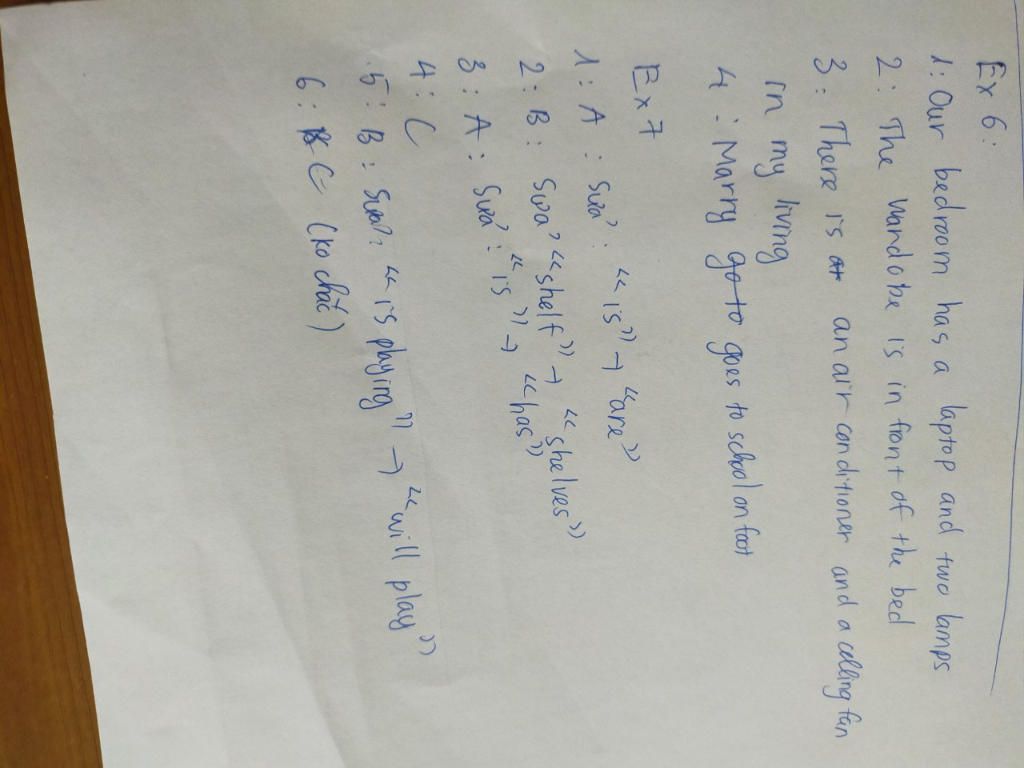 Ex 6:
1: Our bedroom has a laptop and two lamps
2: The wandobe is in front of the bed
3: There is an air conditioner and a celling fan
in my living
4: Marry go to goes to school on foot
Ex 7
1: A: Sửa: "is" → "are"
2: B: Sửa "shelf" → "shelves"
3: A: Sửa: "is" → "has"
4: C
5: B: Sửa: "is playing" → "will play"
6: C (ko chắc)